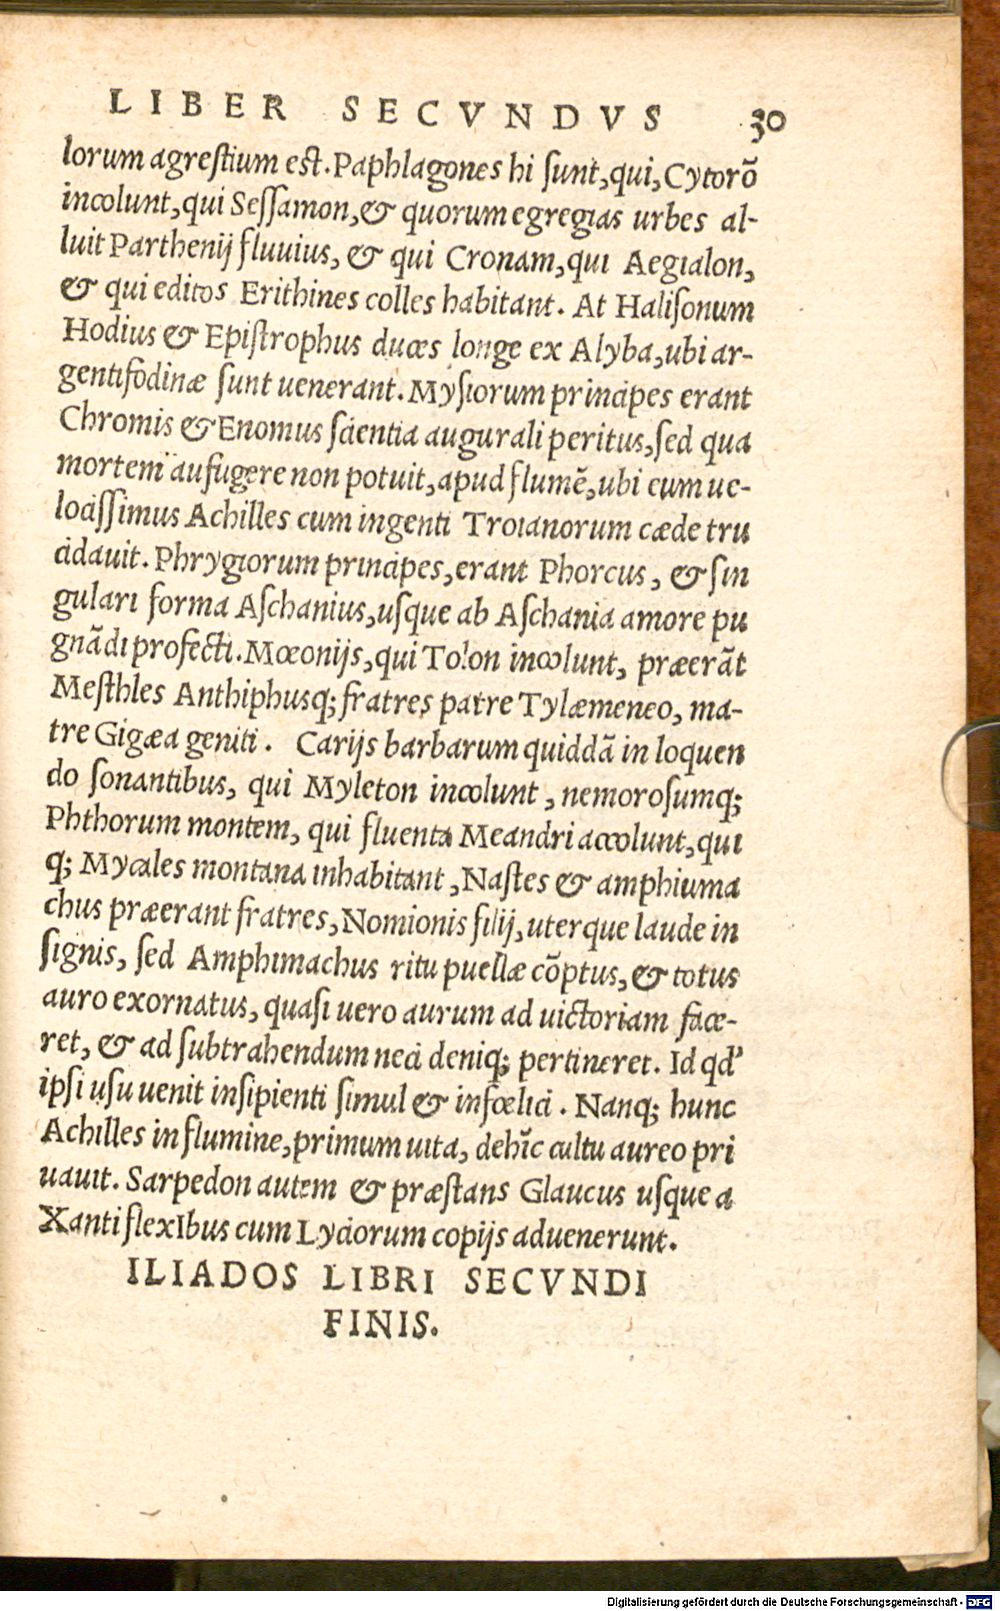 LIBER SECVNDVS 30
lorum agrestium est. Paphlagones hi sunt, qui, Cytorõ
incolunt, qui Sessamon, & quorum egregias urbes al-
luit Parthenij fluuius, & qui Cronam, qui Aegialon,
& qui editos Erithines colles habitant. At Halisonum
Hodius & Epistrophus duces longe ex Alyba, ubi ar-
gentifodinæ sunt uenerant. Mysiorum principes erant
Chromis & Enomus scientia augurali peritus, sed qua
mortem aufugere non potuit, apud flumẽ, ubi eum ue-
locissimus Achilles cum ingenti Troianorum cæde tru
cidauit. Phrygiorum principes, erant Phorcus, & sin
gulari forma Aschanius, usque ab Aschania amore pu
gnãdi profecti. Mœonijs, qui Tolon incolunt, præerãt
Mesthles Anthiphusq; fratres patre Tylæmeneo, ma-
tre Gigæa geniti. Carijs barbarum quiddã in loquen
do sonantibus, qui Myleton incolunt, nemorosumq;
Phthorum montem, qui fluenta Meandri accolunt, qui
q; Mycales montana inhabitant, Nastes & amphiuma
chus præerant fratres, Nomionis filij, uterque laude in
signis, sed Amphimachus ritu puellæ cõptus, & totus
auro exornatus, quasi uero aurum ad uictoriam face-
ret, & ad subtrahendum neci deniq; pertineret. Id qd'
ipsi usu uenit insipienti simul & infœlici. Nanq; hunc
Achilles in flumine, primum uita, dehĩc cultu aureo pri
uauit. Sarpedon autem & præstans Glaucus usque a
Xanti flexIbus cum Lyciorum copijs aduenerunt.
ILIADOS LIBRI SECVNDI
FINIS.
Digitalisierung gefördert durch die Deutsche Forschungsgemeinschaft - DFG